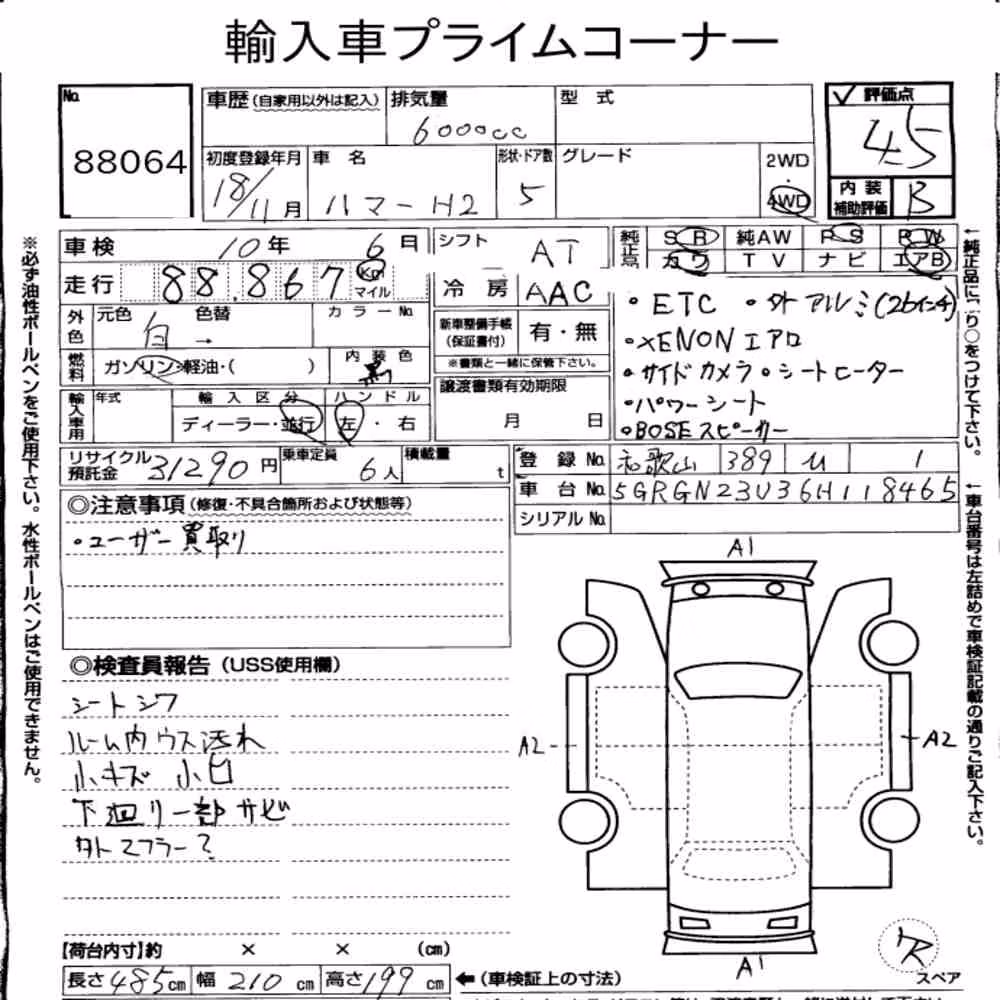 輸入車プライムコーナー
No. 88064
車歴 (自家用以外は記入)
排気量 6000cc
型 式
評価点 4.5
初度登録年月 18/11月
車 名 ハマーH2
形状・ドア数 5
グレード
2WD・4WD
内装補助評価 B
車検 10年 6月
シフト AT
純正 SR 純AW PS PW
カワ TV ナビ エアB
走行 88,867 Km マイル
冷房 AAC
外色 元色 白 色替 → カラーNo.
新車整備手帳(保証書付) 有・無
※書類と一緒に保管下さい。
・ETC ・外アルミ(26インチ)
・XENON エアロ
・サイドカメラ ・シートヒーター
・パワーシート
・BOSEスピーカー
燃料 ガソリン・軽油・( )
内装色 黒
譲渡書類有効期限 月 日
輸入車用 年式
輸入区分 ディーラー・並行
ハンドル 左・右
リサイクル預託金 31290円
乗車定員 6人
積載量 t
登録No. 和歌山 389 ひ 1
車台No. 5GRGN23U36H118465
シリアルNo.
◎注意事項 (修復・不具合箇所および状態等)
・ユーザー買取り
◎検査員報告 (USS使用欄)
シートシワ
ルーム内ウス汚れ
小キズ 小凹
下廻り一部サビ
外マフラー?
A1
A2
A2
A1
【荷台内寸】約 × × (cm)
長さ 485cm 幅 210cm 高さ 199cm
←(車検証上の寸法)
スペア
※必ず油性ボールペンをご使用下さい。水性ボールペンはご使用できません。
←車台番号は左詰めで車検証記載の通りご記入下さい。